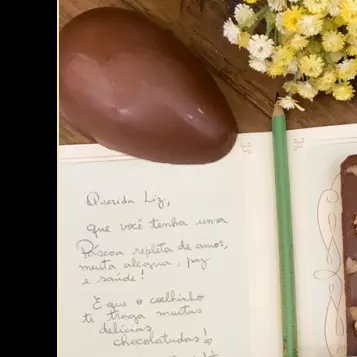 Querida Liz,
que você tenha uma
Páscoa repleta de amor,
muita alegria, paz
e saúde!
E que o coelhinho
te traga muitas
delícias
chocolatudas!